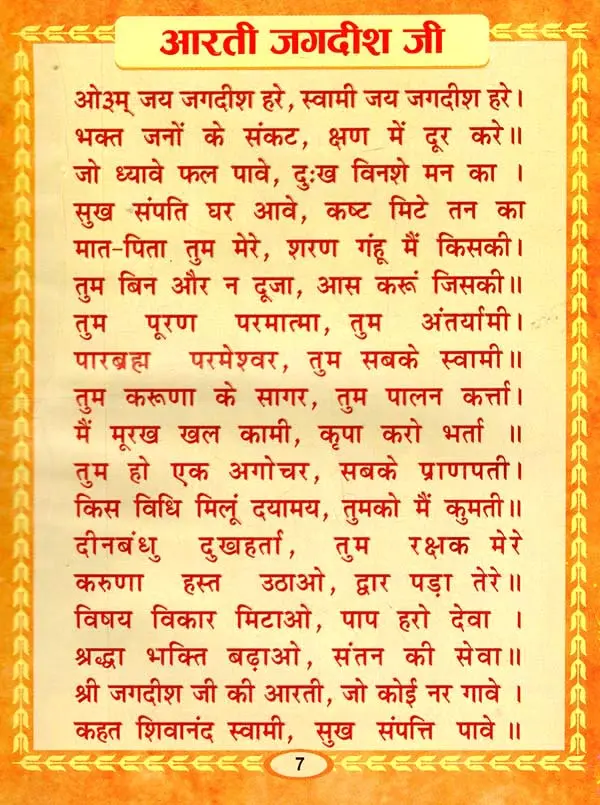 आरती जगदीश जी
ओ३म् जय जगदीश हरे, स्वामी जय जगदीश हरे।
भक्त जनों के संकट, क्षण में दूर करे॥
जो ध्यावे फल पावे, दुःख विनशे मन का ।
सुख संपति घर आवे, कष्ट मिटे तन का
मात-पिता तुम मेरे, शरण गंहू मैं किसकी।
तुम बिन और न दूजा, आस करूं जिसकी॥
तुम पूरण परमात्मा, तुम अंतर्यामी।
पारब्रह्म परमेश्वर, तुम सबके स्वामी॥
तुम करूणा के सागर, तुम पालन कर्त्ता।
मैं मूरख खल कामी, कृपा करो भर्ता ॥
तुम हो एक अगोचर, सबके प्राणपती।
किस विधि मिलूं दयामय, तुमको मैं कुमती॥
दीनबंधु दुखहर्ता, तुम रक्षक मेरे
करुणा हस्त उठाओ, द्वार पड़ा तेरे॥
विषय विकार मिटाओ, पाप हरो देवा ।
श्रद्धा भक्ति बढ़ाओ, संतन की सेवा॥
श्री जगदीश जी की आरती, जो कोई नर गावे ।
कहत शिवानंद स्वामी, सुख संपत्ति पावे ॥
7